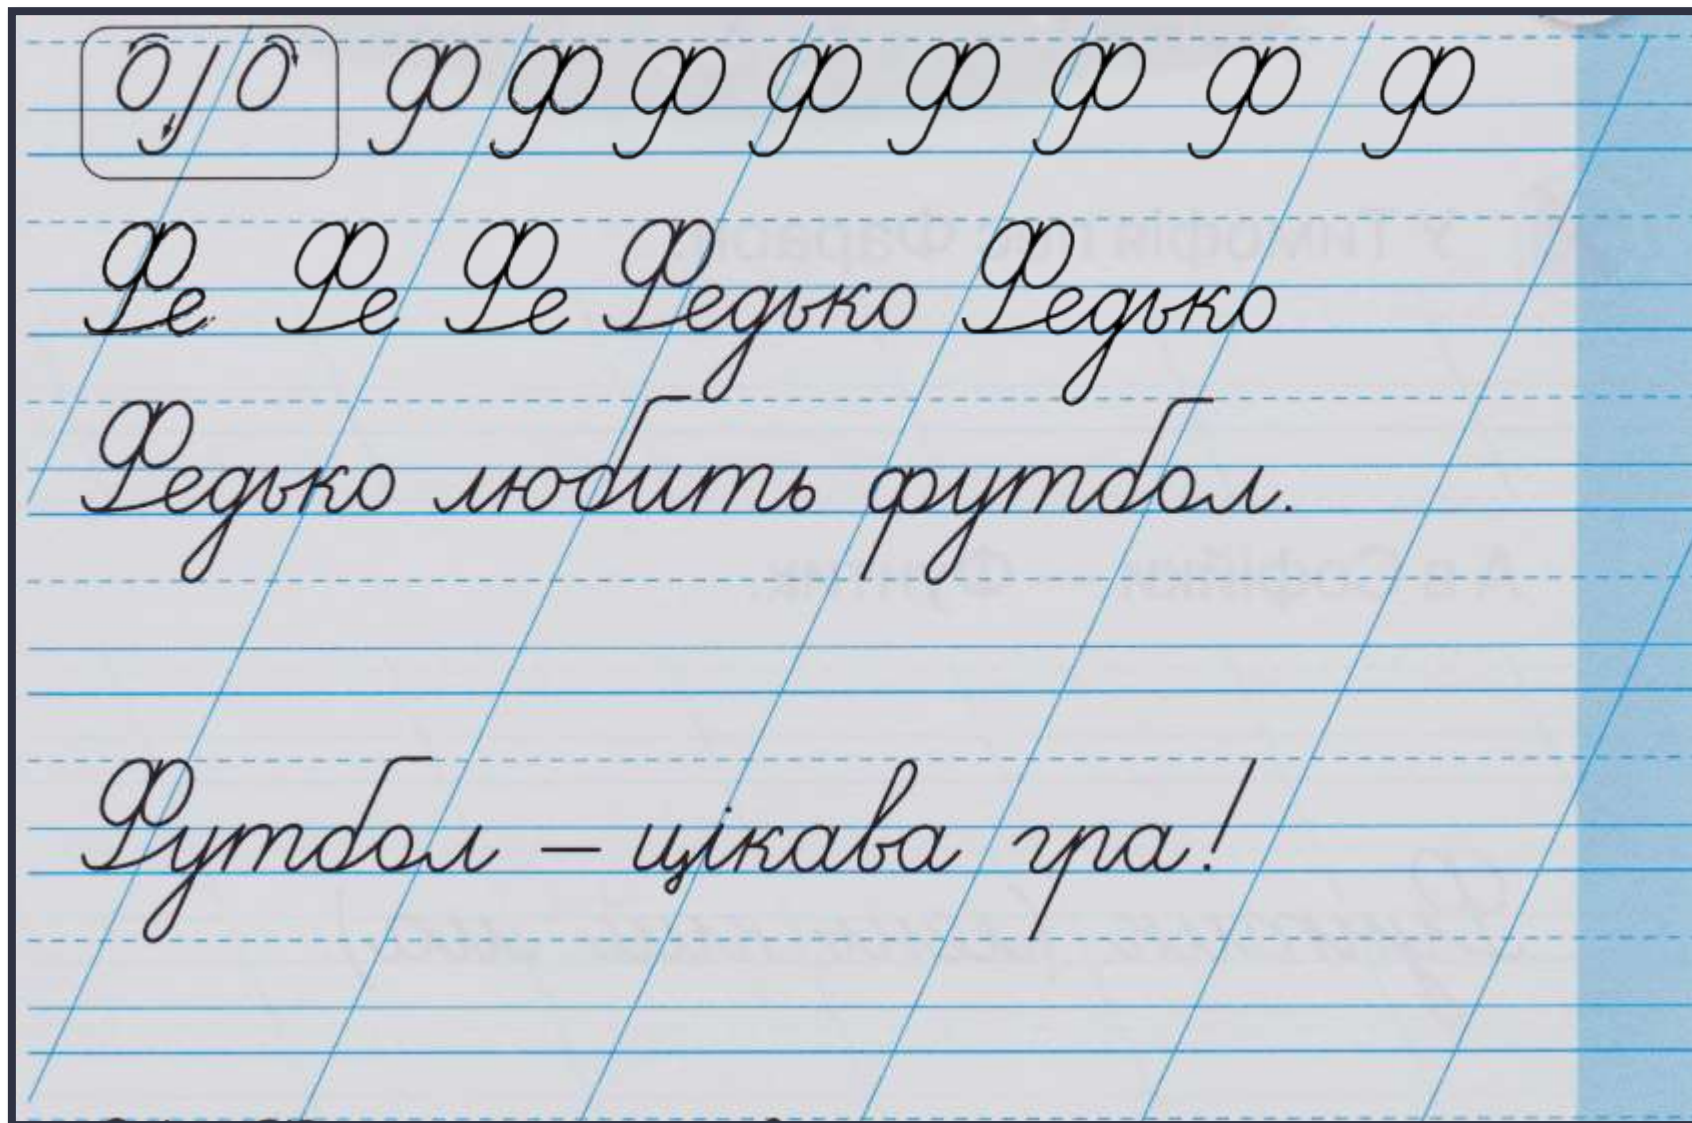 Ф Ф Ф Ф Ф Ф Ф Ф
Фе Фе Фе Федько Федько
Федько любить футбол.
Футбол – цікава гра!